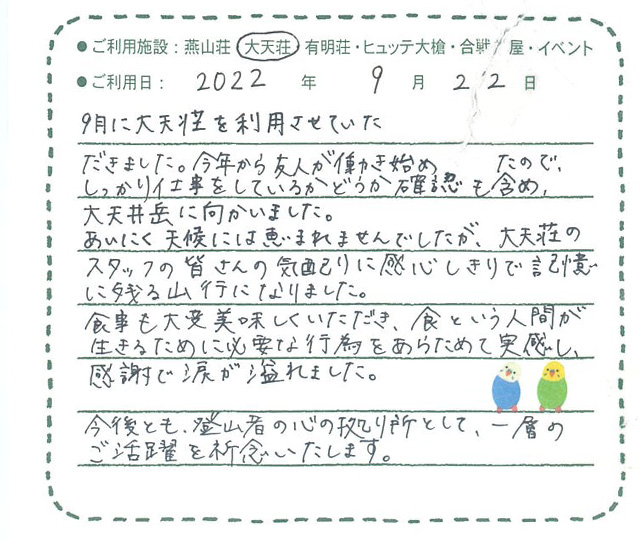 ●ご利用施設：燕山荘・大天荘・有明荘・ヒュッテ大槍・合戦 屋・イベント
●ご利用日： 2022 年 9 月 22 日
9月に大天荘を利用させていた
だきました。今年から友人が働き始め たので、
しっかり仕事をしているかどうか確認も含め、
大天井岳に向かいました。
あいにく天候には恵まれませんでしたが、大天荘の
スタッフの皆さんの気配りに感心しきりで記憶
に残る山行になりました。
食事も大変美味しくいただき、食という人間が
生きるために必要な行為をあらためて実感し、
感謝で涙が溢れました。
今後とも、登山者の心の拠り所として、一層の
ご活躍を祈念いたします。